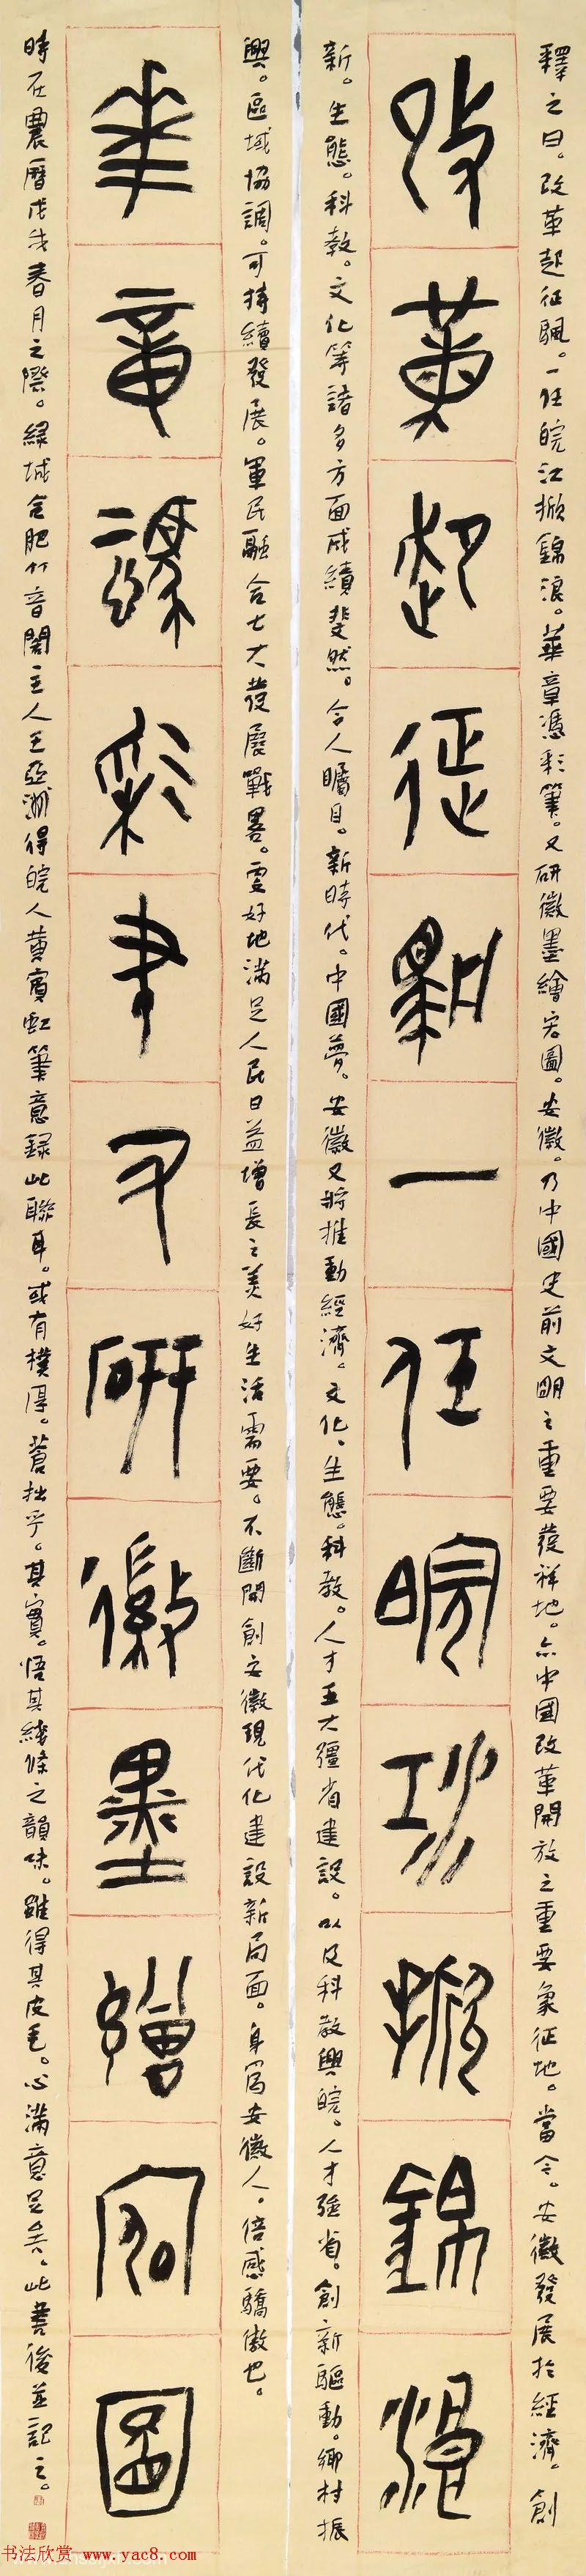 釋之曰。改革起征颿。一任皖江掀錦浪。華章憑彩筆。又研徽墨繪宏圖。安徽。乃中國史前文明之重要發祥地。亦中國改革開放之重要象征地。當今。安徽發展於經濟。創
改革起征颿一任皖江掀錦浪
新。生態。科教。文化等諸多方面成績斐然。令人矚目。新時代。中國夢。安徽又將推動經濟。文化。生態。科教。人才五大彊省建設。以及科教興皖。人才強省。創新驅動。鄉村振
興。區域協調。可持續發展。軍民融合七大發展戰畧。更好地滿足人民日益增長之美好生活需要。不斷開創安徽現代化建設新局面。身爲安徽人。倍感驕傲也。
華章謀彩聿又研徽墨繪宏圖
時在農曆戊戌春月之際。綠城合肥竹音閣主人王亞洲得皖人黃賓虹筆意錄此聯耳。或有樸厚。蒼拙乎。其實。悟其綫條之韻味。雖得其皮毛。心滿意足矣。此書後並記之。
书法欣赏 www.yac8.com